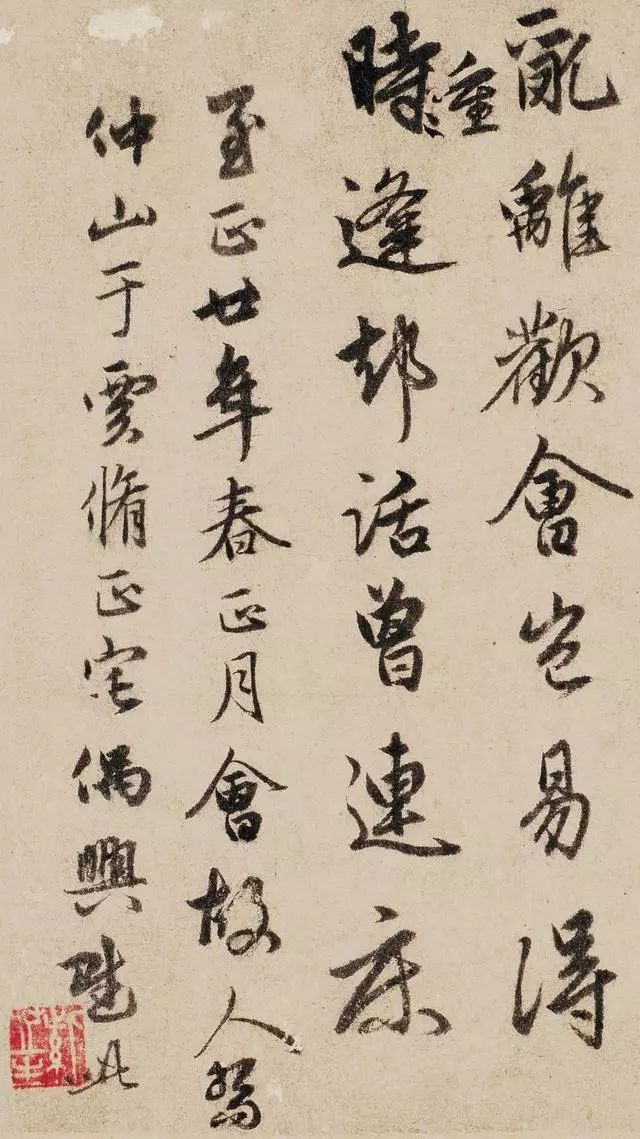 亂離歡會豈易得
時重逢却話曾連床
至正廿年春正月會故人
仲山于脩正宅偶興此